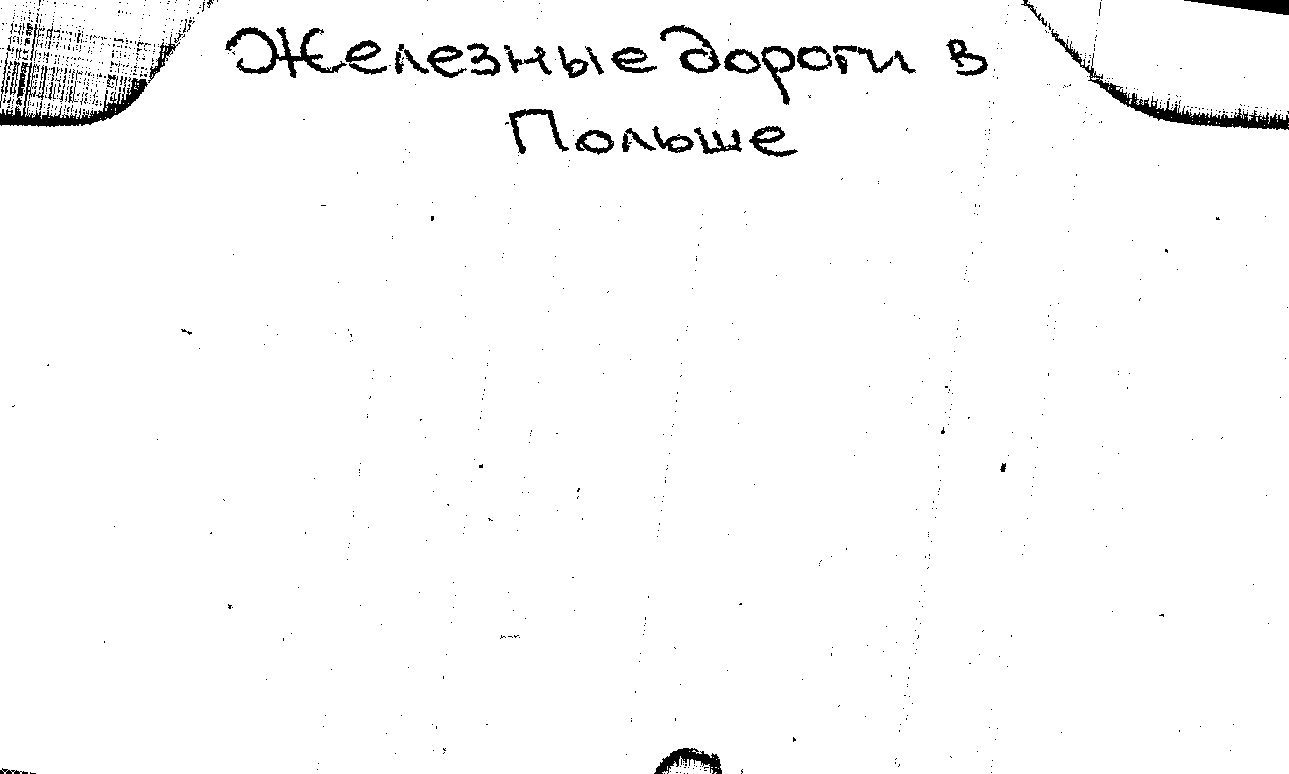 Железные дороги в
Польше